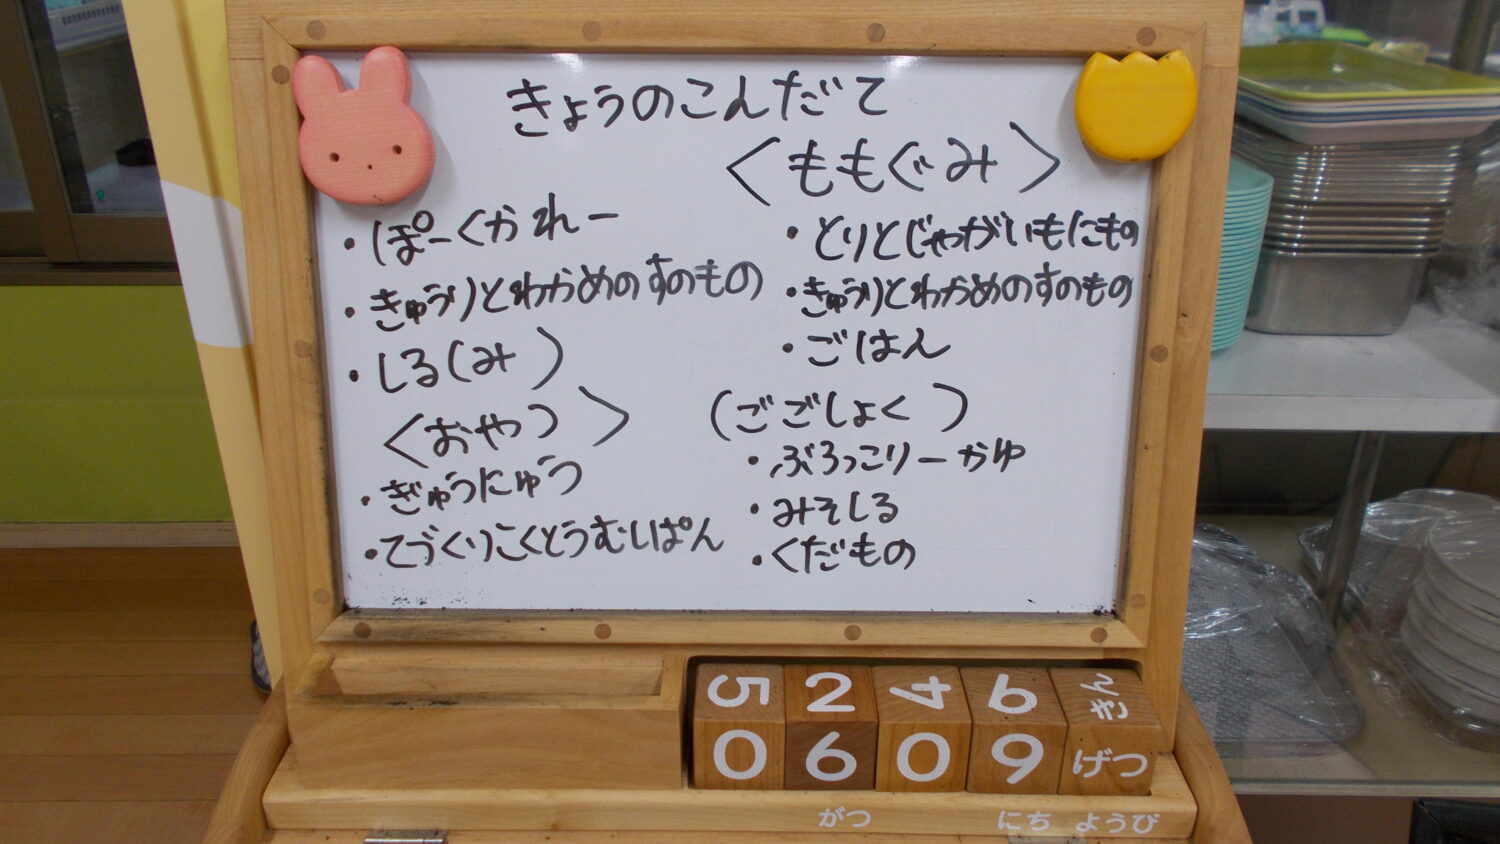 きょうのこんだて
・ぽーくかれー
・きゅうりとわかめのすのもの
・しる(み)
<おやつ>
・ぎゅうにゅう
・てづくりこくとうむしぱん
<ももぐみ>
・とりとじゃがいもにもの
・きゅうりとわかめのすのもの
・ごはん
(ごごしょく)
・ぶろっこりーかゆ
・みそしる
・くだもの
5 2 4 6 きん
0 6 0 9 げつ
がつ にち ようび